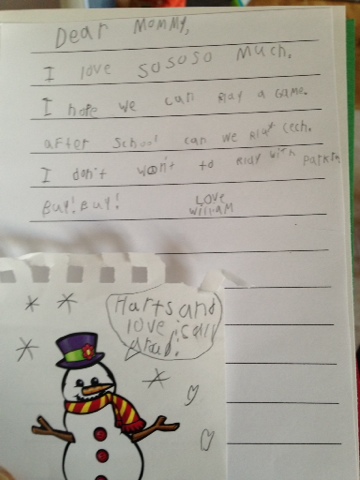 Dear Mommy,
I love SOSOSO much.
I hope we can play a game.
after school can we play cech.
I don't won't to play with
Buy! Buy!
LOVE
WILLIAM
Harts and
love